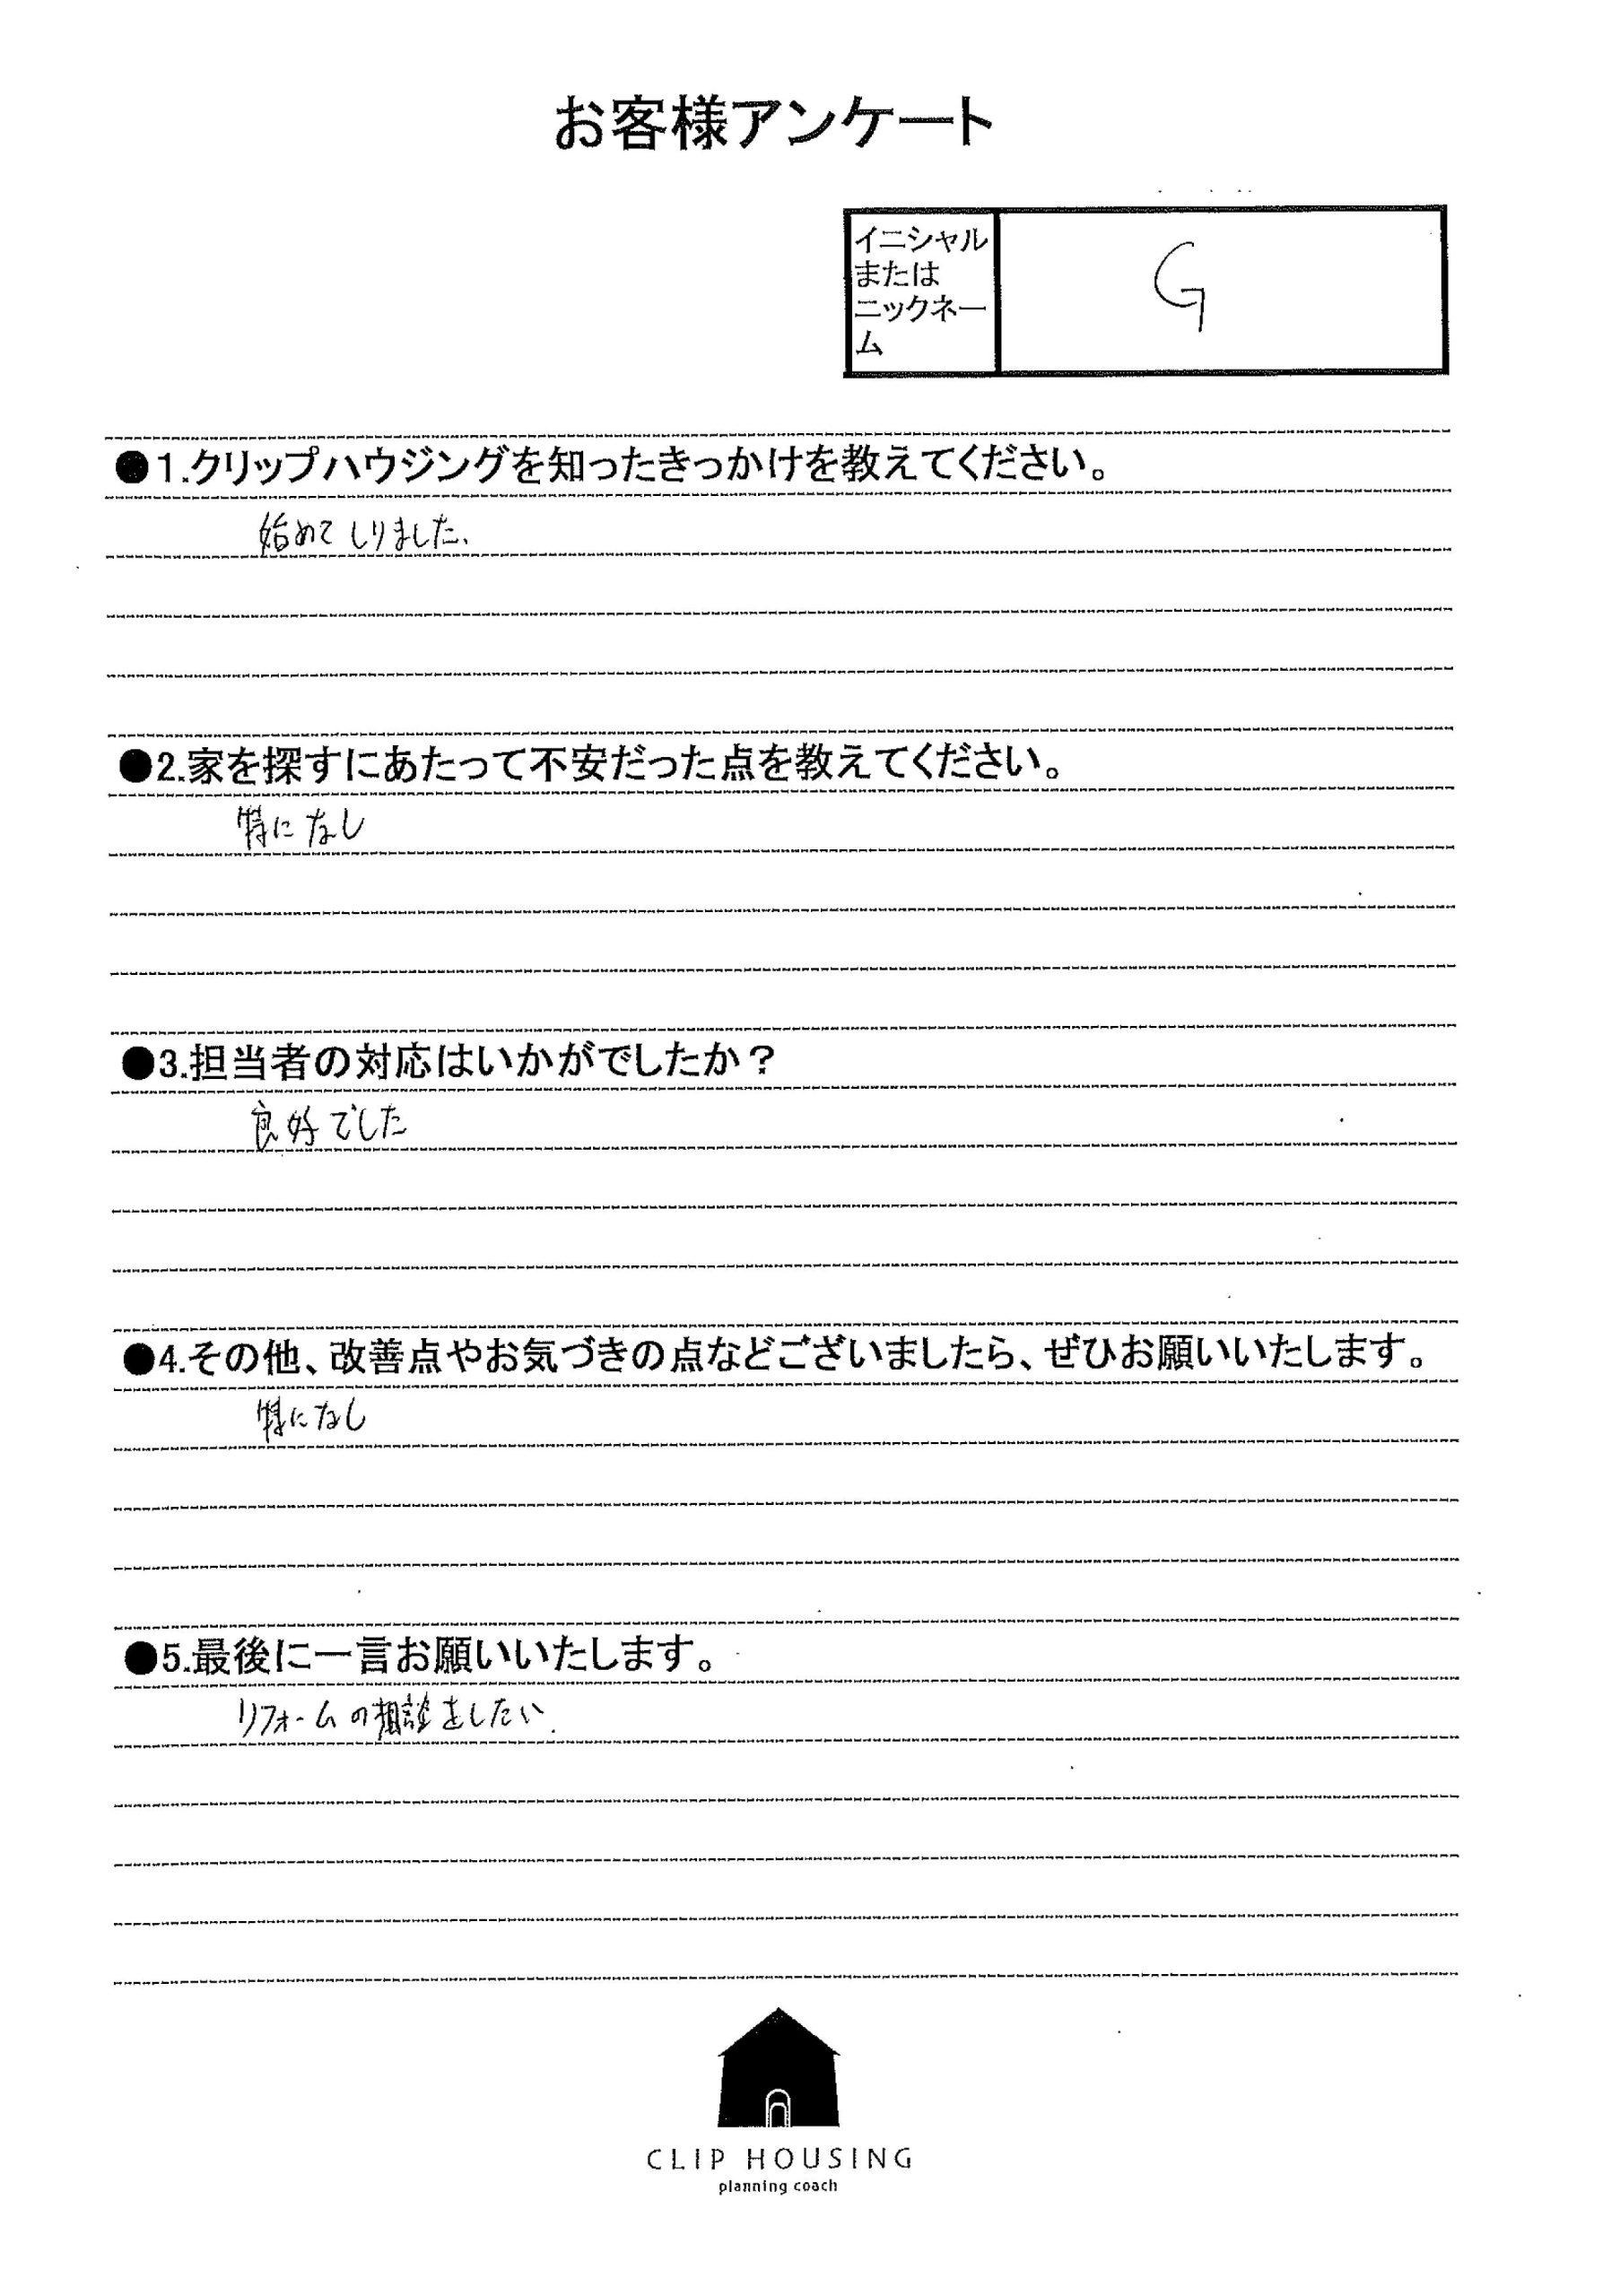 お客様アンケート
イニシャル
または
ニックネー
ム
G
●1.クリップハウジングを知ったきっかけを教えてください。
始めてしりました、
●2.家を探すにあたって不安だった点を教えてください。
特になし
●3.担当者の対応はいかがでしたか？
良好でした
●4.その他、改善点やお気づきの点などございましたら、ぜひお願いいたします。
特になし
●5.最後に一言お願いいたします。
リフォームの相談をしたい.
CLIP HOUSING
planning coach